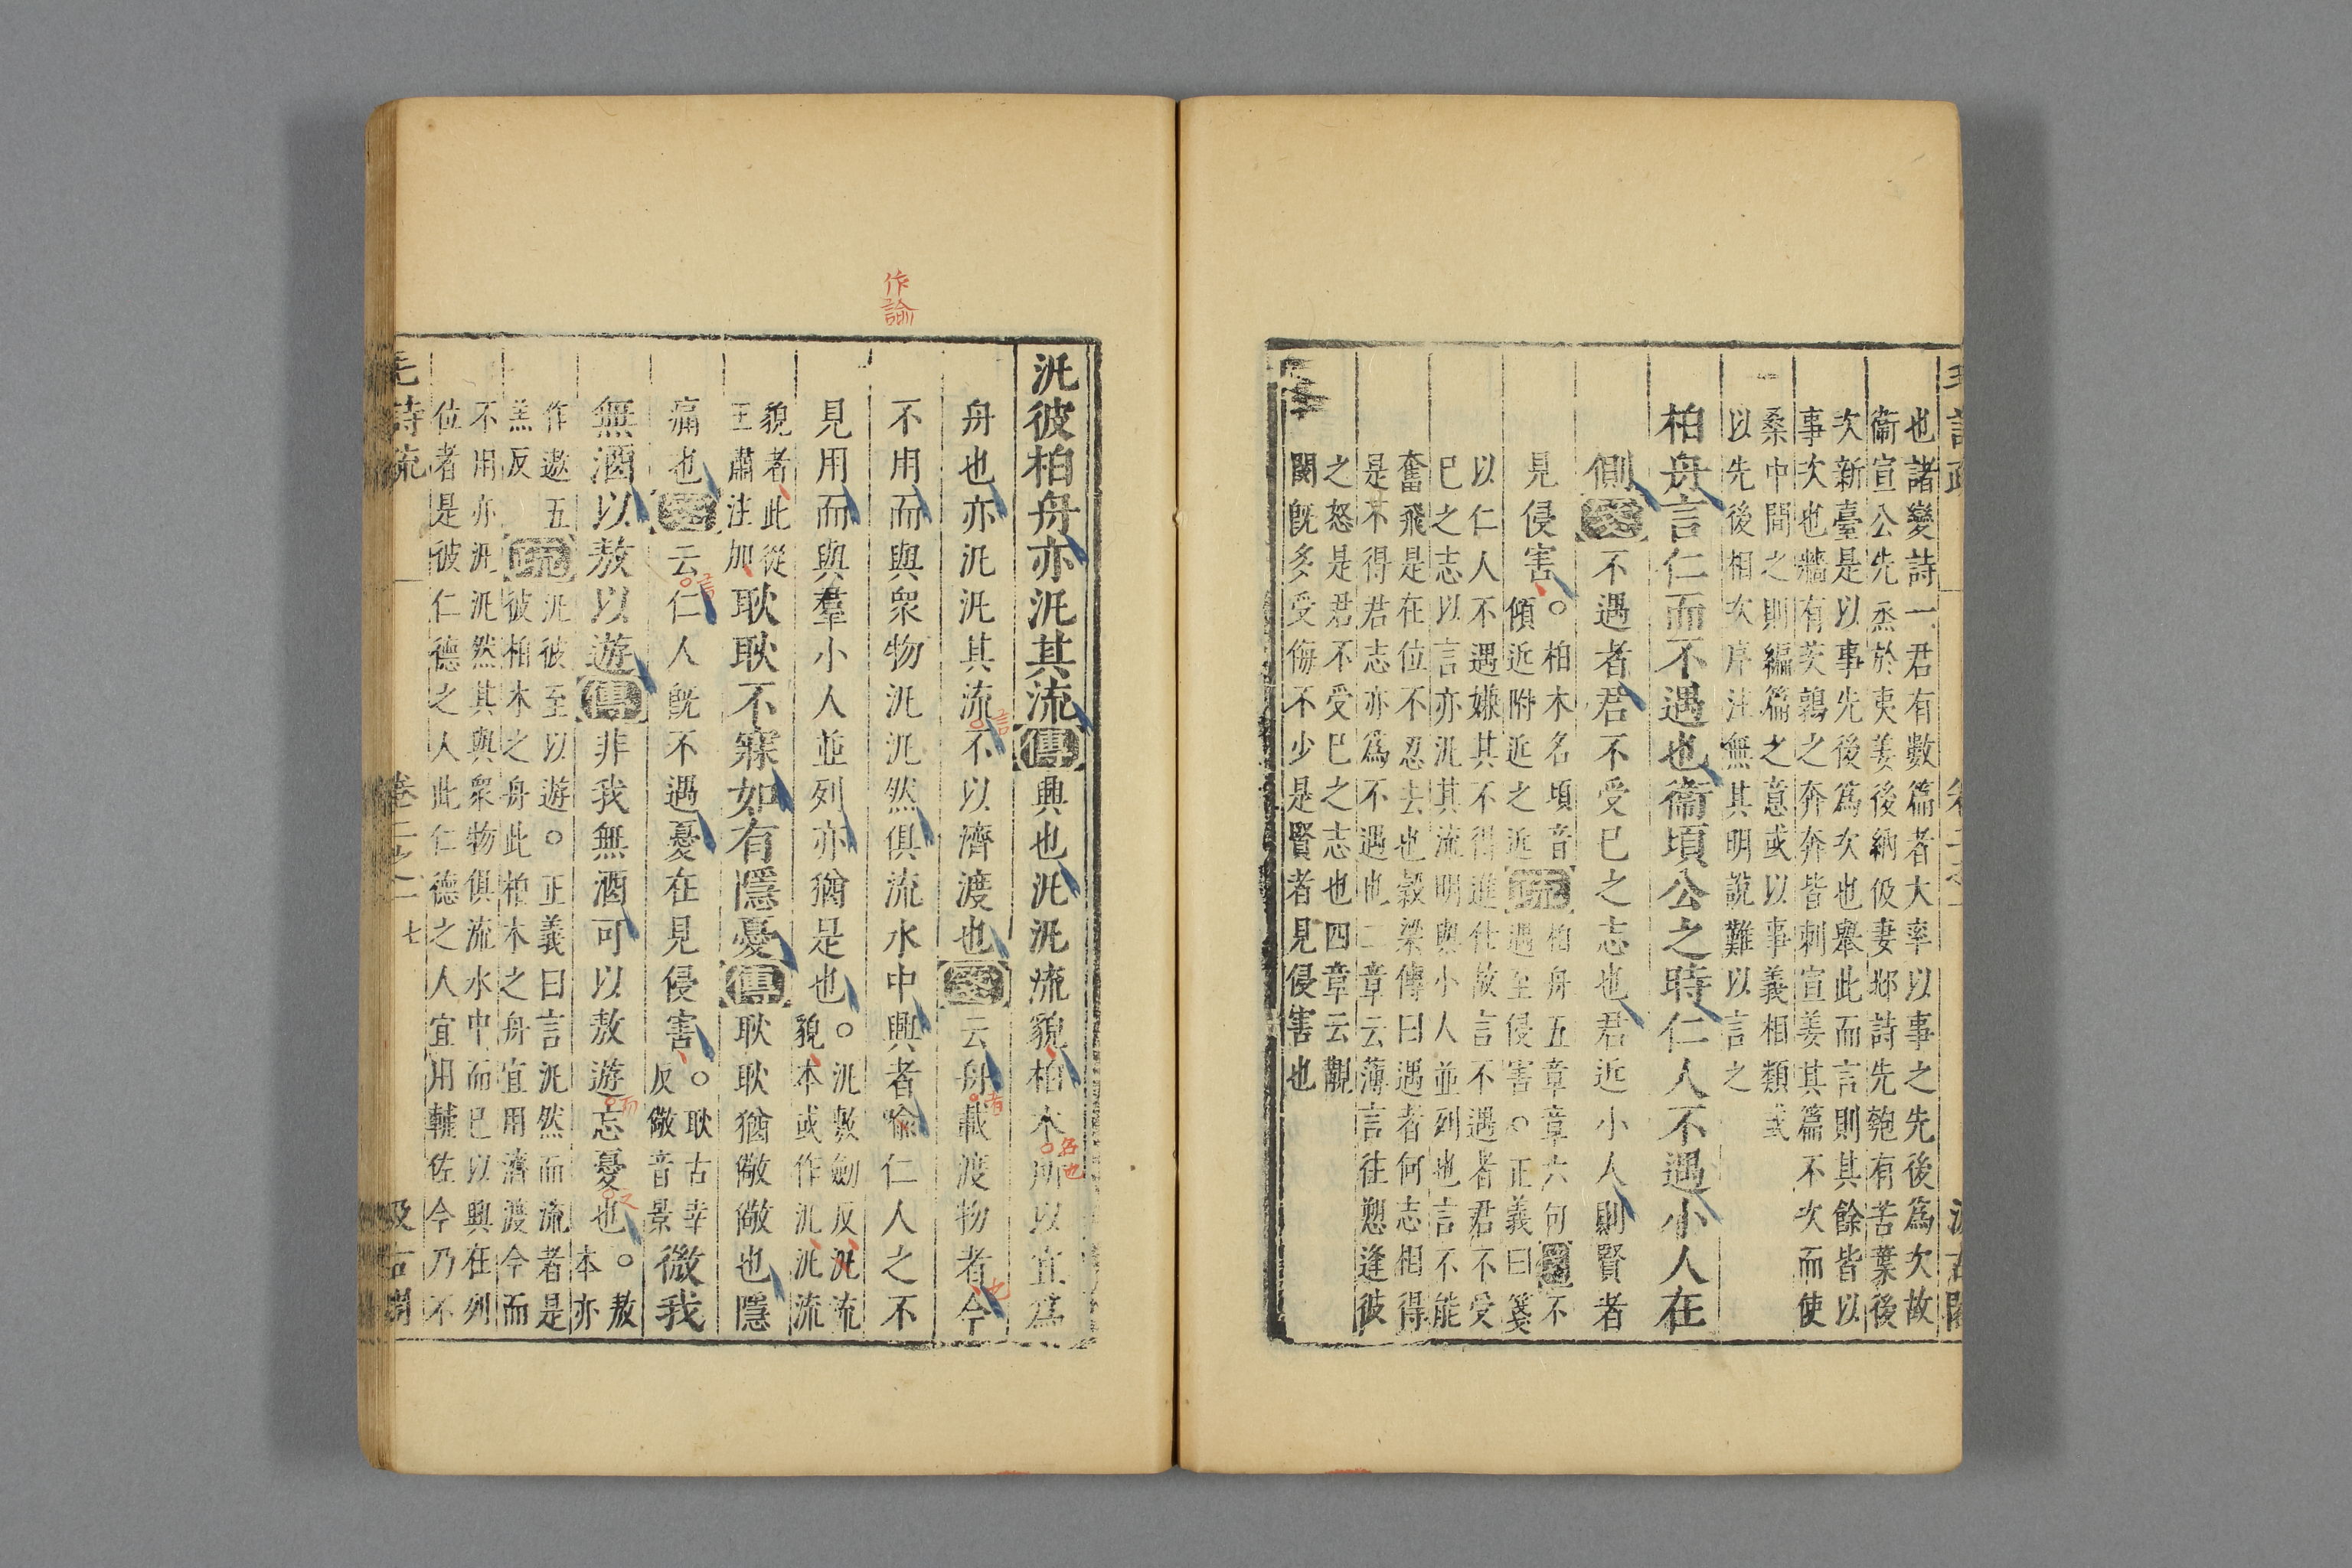 也諸變詩一君有數篇者大率以事之先後爲次故
衞宣公先烝於夷姜後納伋妻邶詩先匏有苦葉後
次新臺是以事先後爲次也舉此而言則其餘皆以
事次也牆有茨鶉之奔奔皆刺宣姜其篇不次而使
桑中間之則編篇之意或以事義相類或
以先後相次序注無其明說難以言之
柏舟言仁而不遇也衞頃公之時仁人不遇小人在
側箋不遇者君不受己之志也君近小人則賢者
見侵害○柏木名頃音
傾近附近之近疏柏舟五章章六句箋不
遇至侵害○正義曰箋
以仁人不遇嫌其不得進仕故言不遇者君不受
己之志以言亦汎其流明與小人並列也言不能
奮飛是在位不忍去也穀梁傳曰遇者何志相得
是不得君志亦爲不遇也二章云薄言往愬逢彼
之怒是君不受己之志也四章云覯
閔旣多受侮不少是賢者見侵害也
汎彼柏舟亦汎其流傳興也汎汎流貌柏木所以宜爲
名也
舟也亦汎汎其流不以濟渡也箋云舟載渡物者今
言
者
也
不用而與衆物汎汎然俱流水中興者喩仁人之不
作諭
見用而與羣小人並列亦猶是也○汎敷劒反汎流
貌本或作汎汎流
貌者此從
王肅注加耿耿不寐如有隱憂傳耿耿猶儆儆也隱
痛也箋云仁人旣不遇憂在見侵害○耿古幸
反儆音景微我
無酒以敖以遊傳非我無酒可以敖遊忘憂也○敖
本亦
而
作遨五
羔反疏汎彼至以遊○正義曰言汎然而流者是
彼柏木之舟此柏木之舟宜用濟渡今而
不用亦汎汎然其與衆物俱流水中而已以興在列
位者是彼仁德之人此仁德之人宜用輔佐今乃不
毛詩疏 卷二之一 七 汲古閣